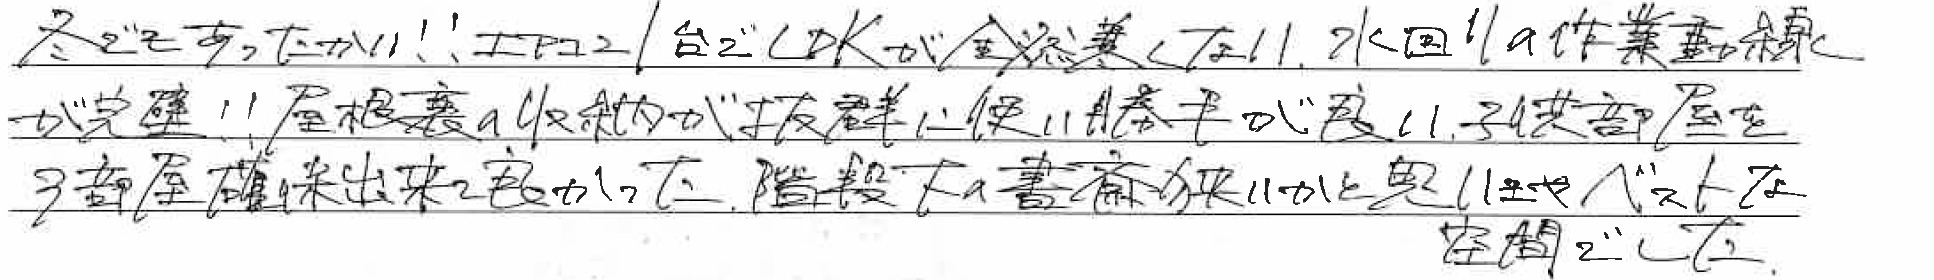 冬でもあったかい!!エアコン1台でLDKが全然寒くない、水回りの作業動線
が完璧!!屋根裏の収納が抜群に使い勝手が良い、子供部屋を
3部屋確保出来て良かった、階段下の書斎狭いかと思いきやベストな
空間でした、